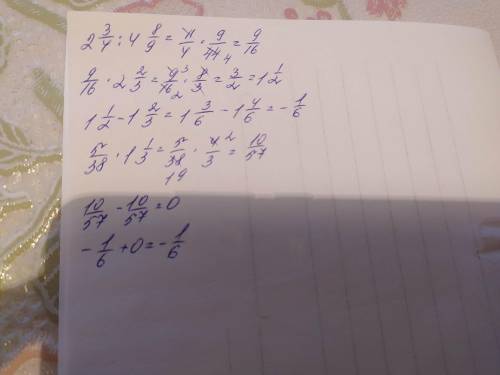 2 3/4 : 4 8/9 = 11/4 · 9/44 4 = 9/16
9/16 · 2 2/3 = 9 3/16 2 · 8/3 = 3/2 = 1 1/2
1 1/2 - 1 2/3 = 1 3/6 - 1 4/6 = - 1/6
5/38 · 1 1/3 = 5/38 19 · 4 2/3 = 10/57
10/57 - 10/57 = 0
- 1/6 + 0 = - 1/6